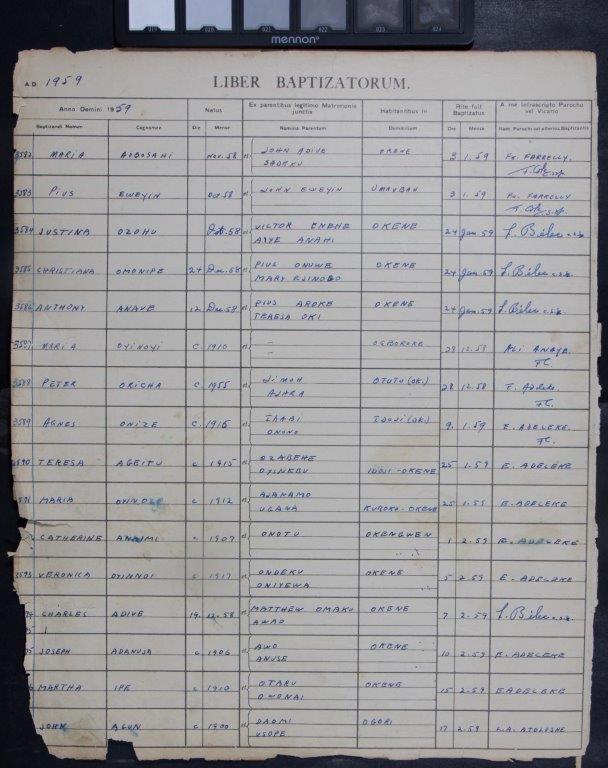 019 020 021 022 023 024
mennon
A.D. 1959
LIBER BAPTIZATORUM.
Anno Domini 1959 Natus Ex parentibus legitimo Matrimonio junctis Habitantibus in Rite fuit Baptizatus A me infrascripto Parocho vel Vicario
Baptizandi Nomen Cognomen Die Mense Nomina Parentum Domicilium Die Mense Nom. Parochi vel alterius Baptizantis
3582 MARIA Nov. 58 et JOHN ADIVE 3 1.59 Fr. FARRELLY
3583 PIUS EWEYIN Oct 58 et JOHN EWEYIN 3 1.59 Fr. FARRELLY
3584 JUSTINA OZOHU Oct. 58 et VICTOR ENEHE OKENE 24 Jan. 59 L. Bélec c.s.sp.
AIYE ANAMI
3585 CHRISTIANA OMONIPE 24 Dec. 58 et PIUS ONUWE OKENE 24 Jan. 59 L. Bélec c.s.sp.
MARY
3586 ANTHONY ANAVE 12 Dec. 58 et PIUS AROKE OKENE 24 Jan. 59 L. Bélec c.s.sp.
TERESA OKI
3587 MARIA OYINOYI C. 1910 et – 28 12.58 ALI
– FC.
3588 PETER ORICHA C. 1955 et JIMOH OTUTU (OK.) 28 12.58
AJARA FC.
3589 AGNES ONIZE C. 1916 et IDOJI (OK.) 9. 1.59 E. ADELEKE
ONONO FC.
3590 TERESA AGEITU c 1915 et OZABEHE 25 1.59 E. ADELEKE
IDOJI - OKENE
MARIA c 1912 et 25 1.59 E. ADELEKE
UGANA KUROKO - OKENE
CATHERINE c 1907 et ONOTU OKENGWEN 1 2.59 E. ADELEKE
3593 VERONICA OYINNOI c 1917 et ONDEKU OKENE 5 2.59 E. ADELEKE
ONIYEWA
CHARLES ADIVE 19. 12.58 et MATTHEW OMAKU OKENE 7 2.59 L. Bélec c.s.sp.
AWAO
JOSEPH ADANUJA c 1906 et AWO OKENE 10 2.59 E. ADELEKE
ANUSE
MARTHA IPE c 1910 et OTARU OKENE 15 2.59 E ADELEKE
OWONAI
JOHN AGUN c 1900 et DAOMI OGORI 17 2.59
USOPE